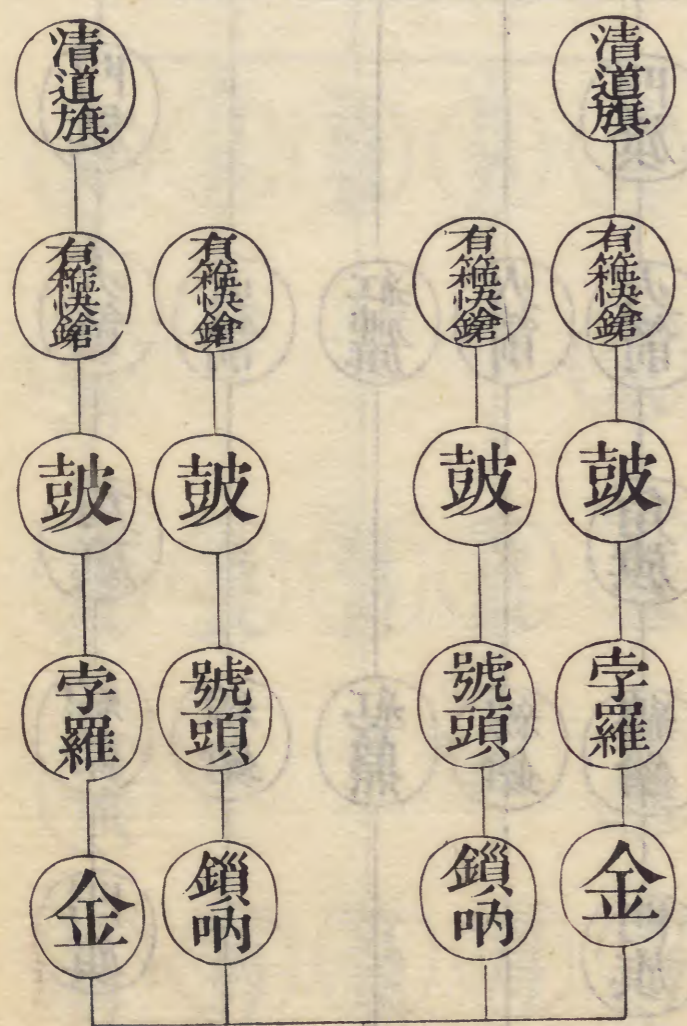 清道旗
有箍快鎗
皷
孛羅
金
有箍快鎗
皷
號頭
鎖吶
有箍快鎗
皷
號頭
鎖吶
清道旗
有箍快鎗
皷
孛羅
金